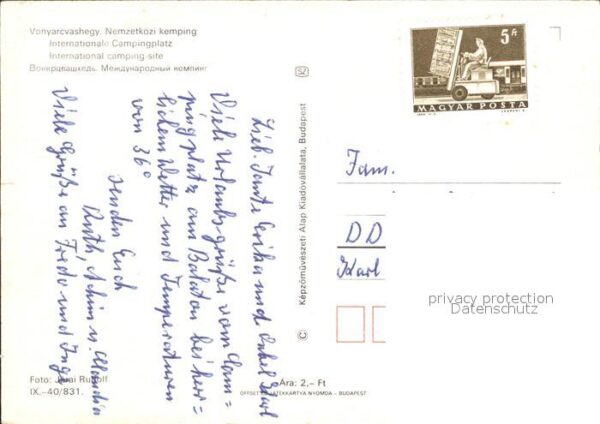 Vonyarcvashegy. Nemzetközi kemping
Internationale Campingplatz
International camping-site
Вонярцвашхедь. Международный компинг
5 Ft
MAGYAR POSTA
Lieb. Tante Erika und Onkel Karl
Viele Urlaubsgrüße vom Cam=
pingplatz am Balaton bei herr=
lichem Wetter und Temperaturen
von 36°
senden Euch
Ruth, Achim u. Claudia
Viele Grüße an Frido und Inge
Képzőművészeti Alap Kiadóvállalata, Budapest
©
Fam.
DD
Karl
privacy protection
Datenschutz
Foto: Járai Rudolf
IX.-40/831.
Ára: 2,- Ft
OFFSET ÉS JÁTÉKKÁRTYA NYOMDA - BUDAPEST